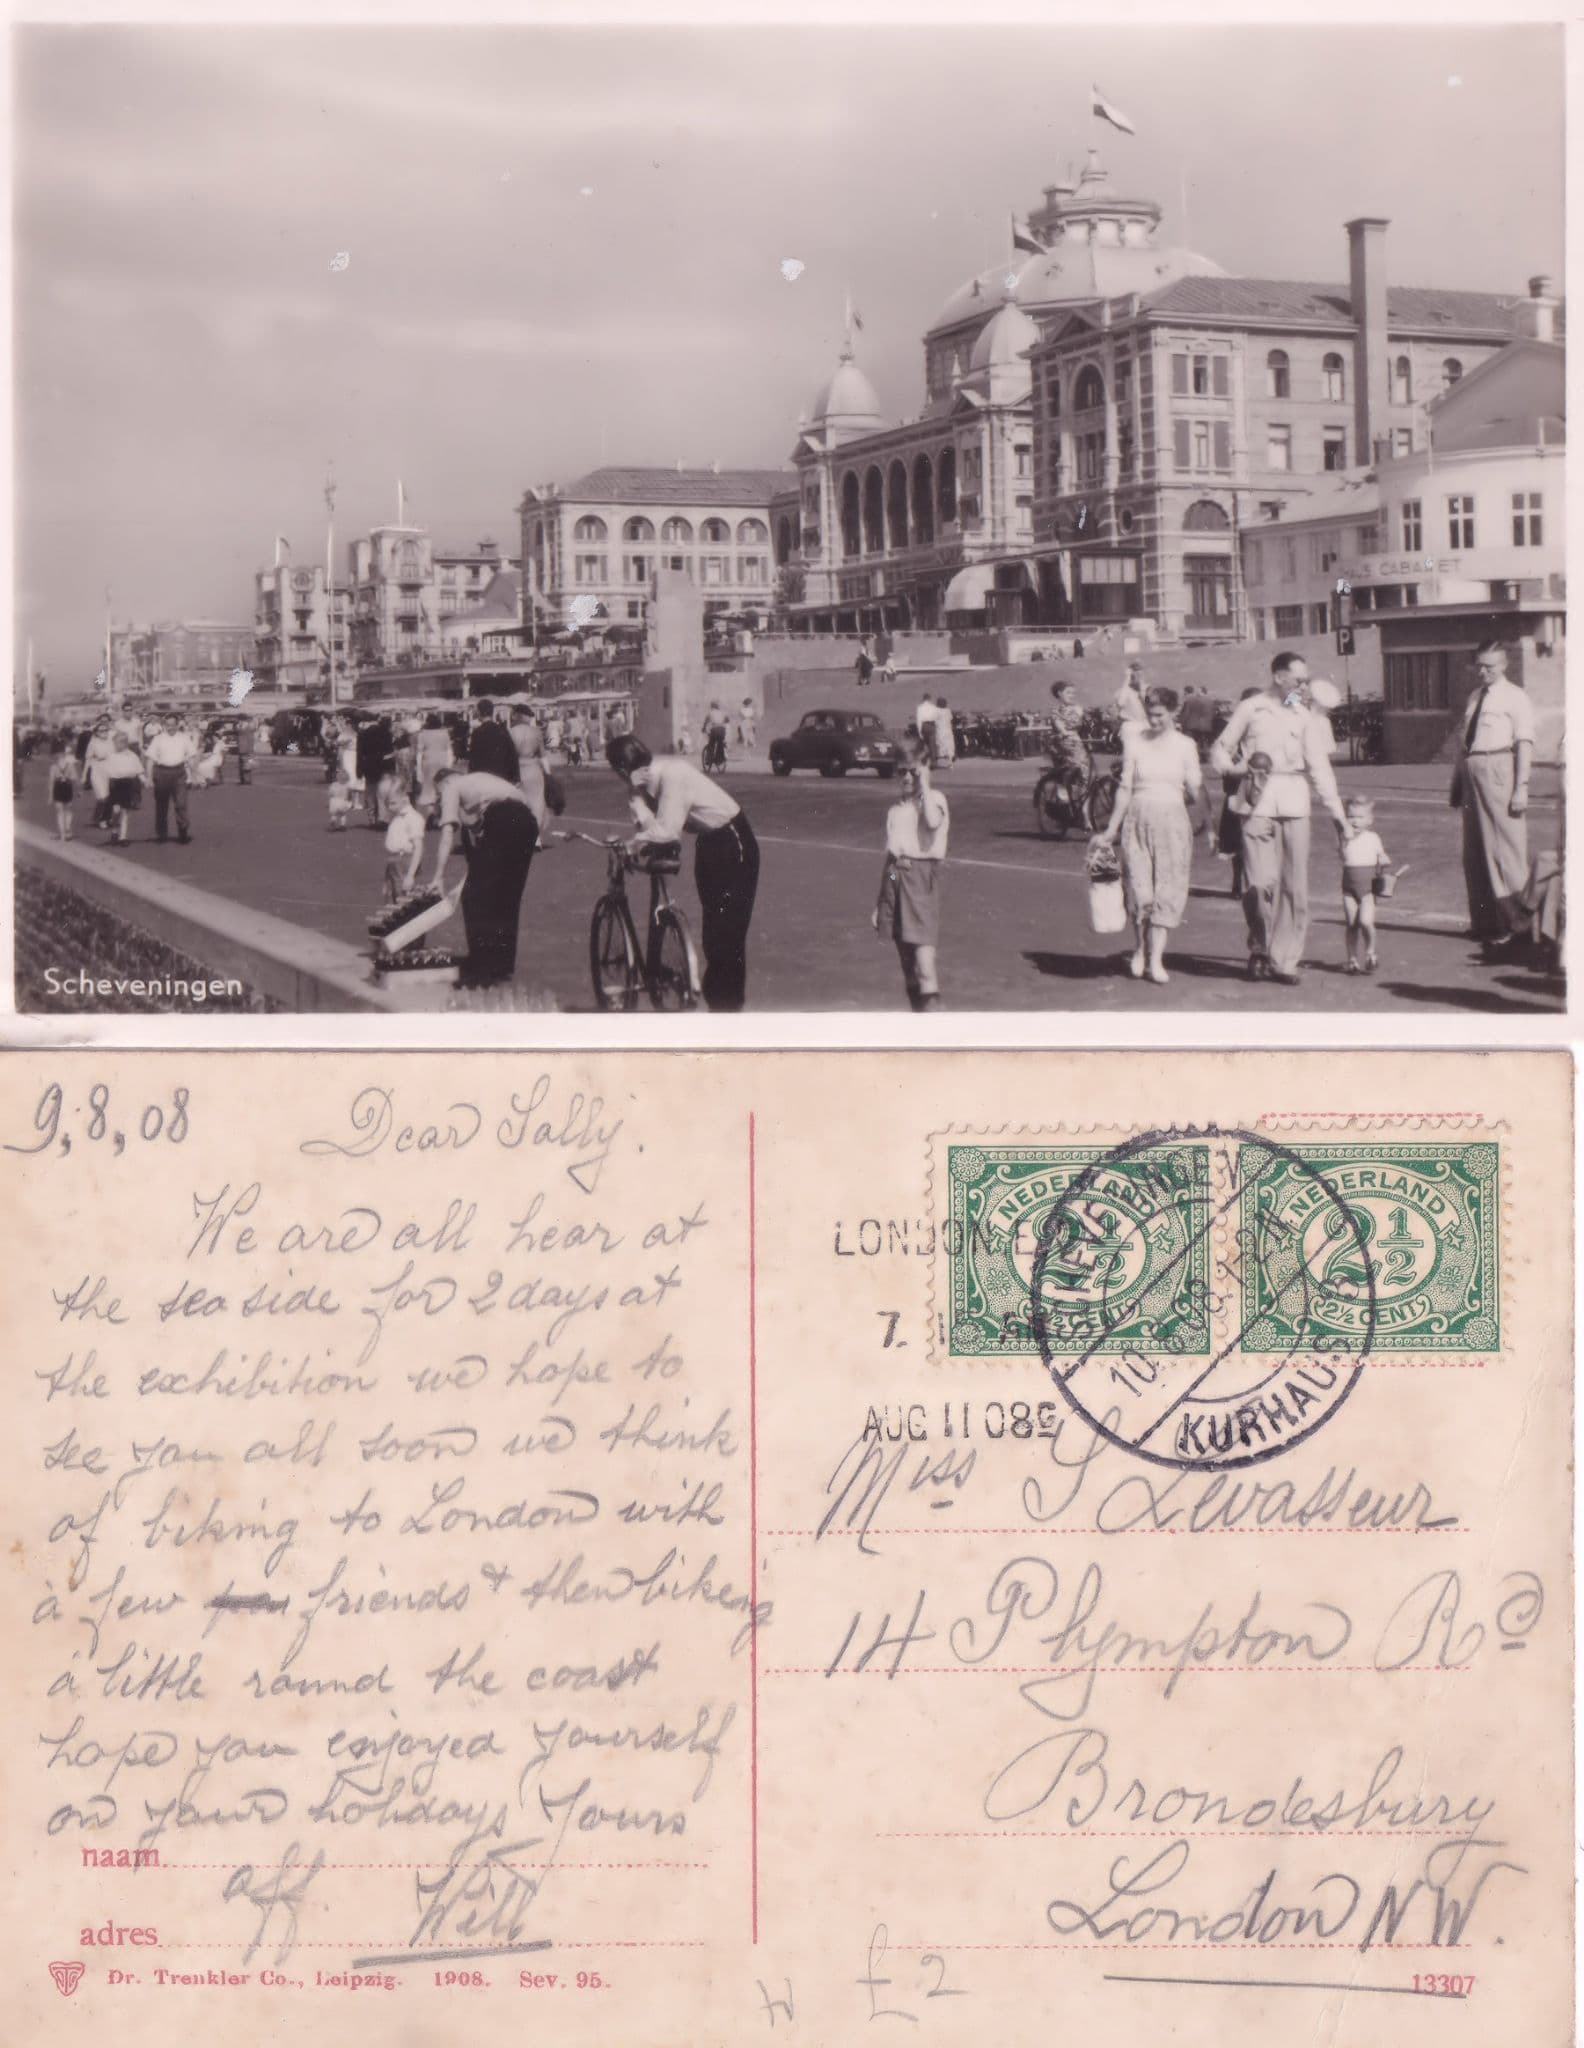 CABARET
P
Scheveningen
9,8,08 Dear Sally.
We are all hear at
the sea side for 2 days at
the exhibition we hope to
see you all soon we think
of biking to London with
a few friends & then bikeing
a little round the coast
hope you enjoyed yourself
on your holidays Yours
naam
aff. Will
adres
Dr. Trenkler Co., Leipzig. 1908. Sev. 95.
NEDERLAND
2 1/2
2½ CENT
NEDERLAND
2 1/2
2½ CENT
SCHEVENINGEN
10.8.08.1-2N
KURHAUS
LONDON
7.
AUG 11 08
Miss S Levasseur
14 Plympton Rd
Brondesbury
London NW.
£2
13307